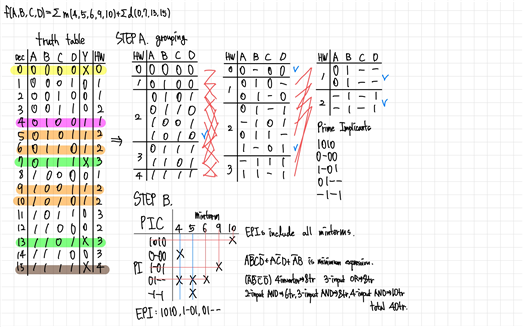 f(A,B,C,D)=Σm(4,5,6,9,10)+Σd(0,7,13,15)
truth table
dec A B C D Y HW
0 0 0 0 0 X 0
1 0 0 0 1 0 1
2 0 0 1 0 0 1
3 0 0 1 1 0 2
4 0 1 0 0 1 1
5 0 1 0 1 1 2
6 0 1 1 0 1 2
7 0 1 1 1 X 3
8 1 0 0 0 0 1
9 1 0 0 1 1 2
10 1 0 1 0 1 2
11 1 0 1 1 0 3
12 1 1 0 0 0 2
13 1 1 0 1 X 3
14 1 1 1 0 0 3
15 1 1 1 1 X 4
⇒
STEP A. grouping
HW A B C D
0 0 0 0 0
1 0 1 0 0
2 0 1 0 1
0 1 1 0
1 0 0 1
1 0 1 0 ✓
3 0 1 1 1
1 1 0 1
4 1 1 1 1
HW A B C D
0 0 - 0 0 ✓
1 0 1 0 -
0 1 - 0
2 0 1 - 1
- 1 0 1
0 1 1 -
1 - 0 1 ✓
3 - 1 1 1
1 1 - 1
HW A B C D
1 0 1 - -
0 1 - - ✓
2 - 1 - 1
- 1 - 1 ✓
Prime Implicants
1010
0-00
1-01
01--
-1-1
STEP B.
PIC
minterm
4 5 6 9 10
PI
1010 X
0-00 X
1-01 X
01-- X X X
-1-1 X
EPI: 1010, 1-01, 01--
EPIs include all minterms.
is minimum expression.
4 inverter→8tr 3-input OR→8tr
2-input AND→6tr, 3-input AND→8tr, 4-input AND→10tr
total 40tr.